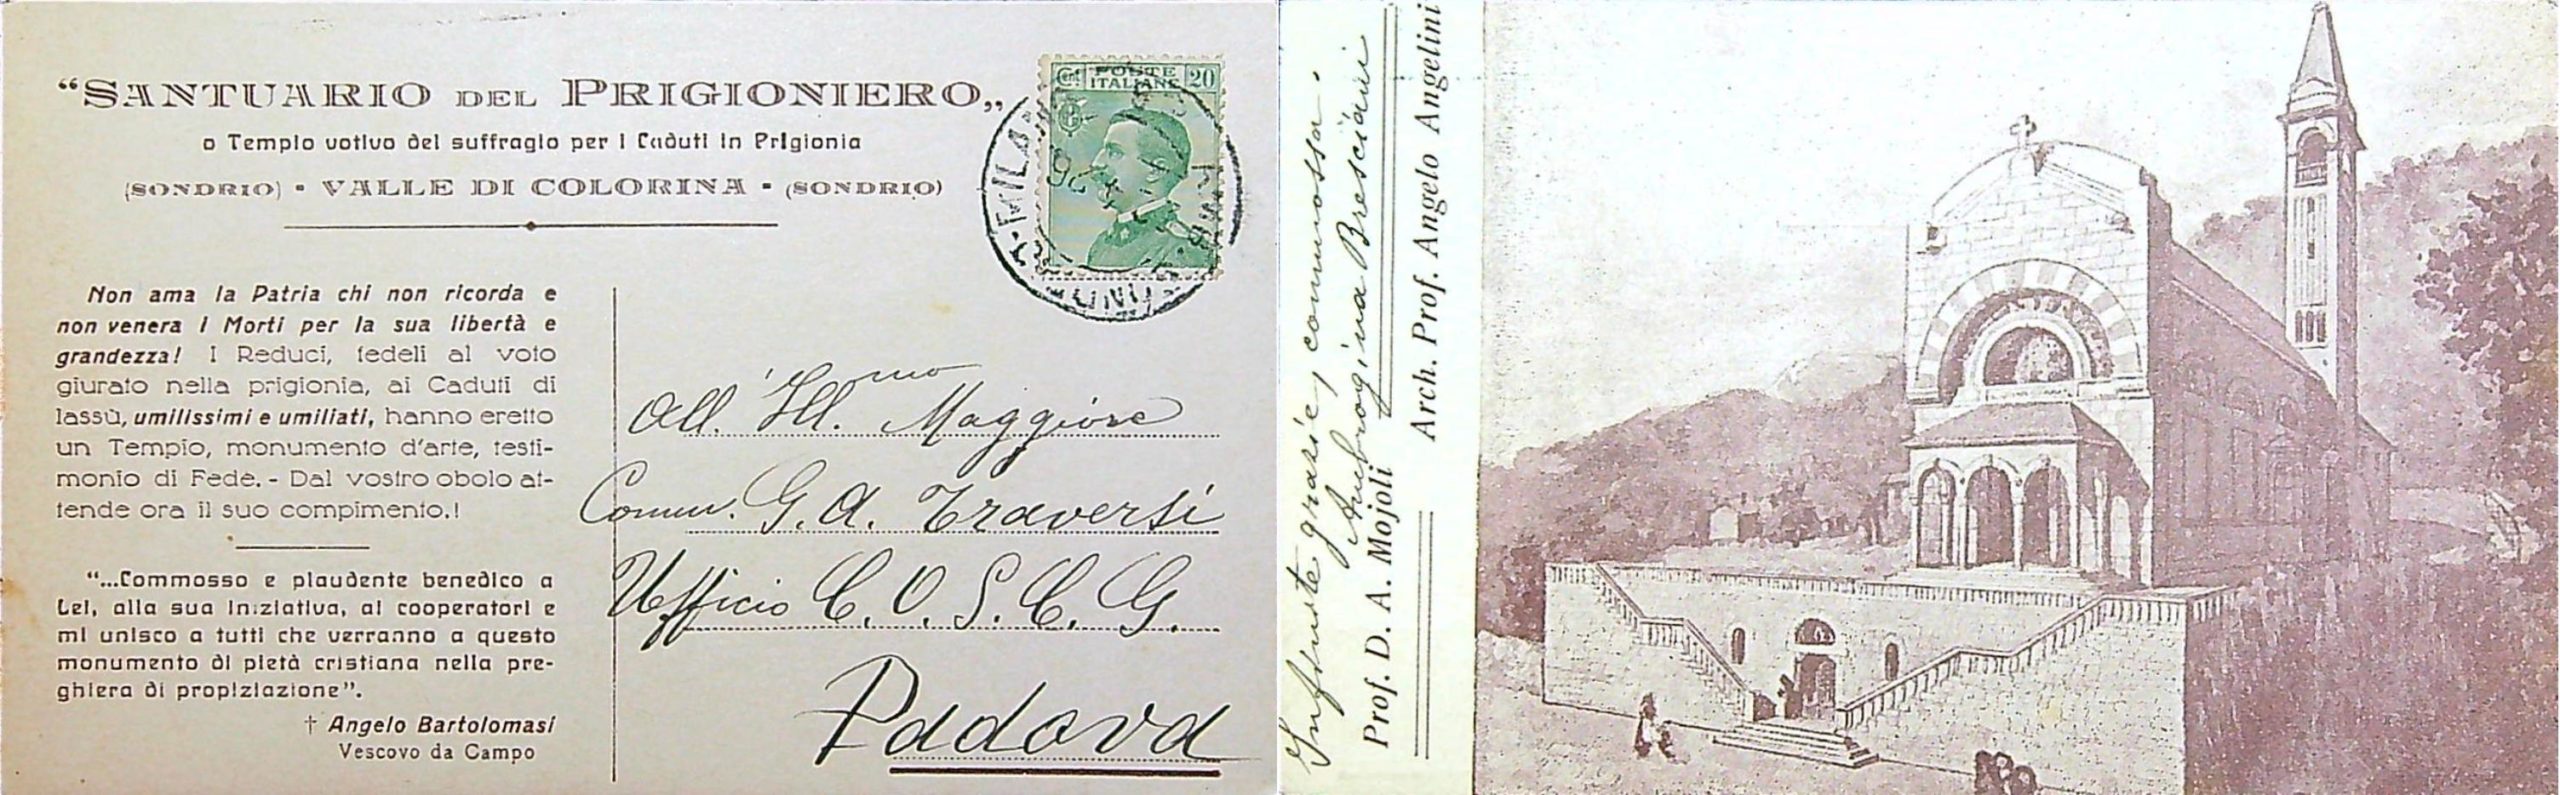 “SANTUARIO DEL PRIGIONIERO„
o Tempio votivo del suffragio per i Caduti in Prigionia
(SONDRIO) - VALLE DI COLORINA - (SONDRIO)
Non ama la Patria chi non ricorda e
non venera i Morti per la sua libertà e
grandezza! I Reduci, fedeli al voto
giurato nella prigionia, ai Caduti di
lassù, umilissimi e umiliati, hanno eretto
un Tempio, monumento d'arte, testi-
monio di Fede. - Dal vostro obolo at-
tende ora il suo compimento.!
“...Commosso e plaudente benedico a
Lei, alla sua iniziativa, ai cooperatori e
mi unisco a tutti che verranno a questo
monumento di pietà cristiana nella pre-
ghiera di propiziazione”.
† Angelo Bartolomasi
Vescovo da Campo
Cent POSTE ITALIANE 20
MILANO
All'Ill.mo Maggiore
Comm. G. A. Traversi
Ufficio C. O. S. C. G.
Padova
Infinite grazie, commossa.
Ambrogina Bresciani
Prof. D. A. Mojoli
Arch. Prof. Angelo Angelini